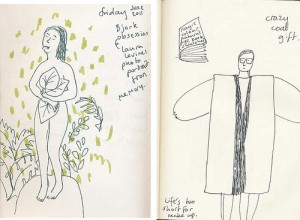 friday June 2011
Björk
obsession
&
Laura
Levine's
photo
portrait
from
memory.
crazy
coat
gift.
Life's too
short for
make up.